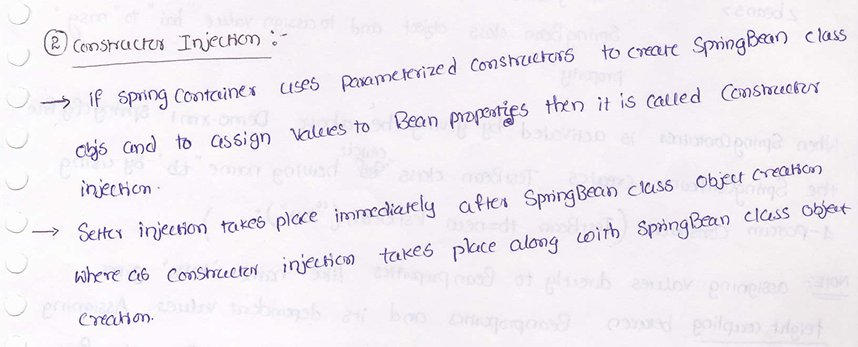 ② Constructor Injection :-
→ if spring container uses parameterized constructors to create SpringBean class
objs and to assign values to Bean properties then it is called Constructor
injection.
→ Setter injection takes place immediately after SpringBean class object creation
where as constructor injection takes place along with SpringBean class object
creation.